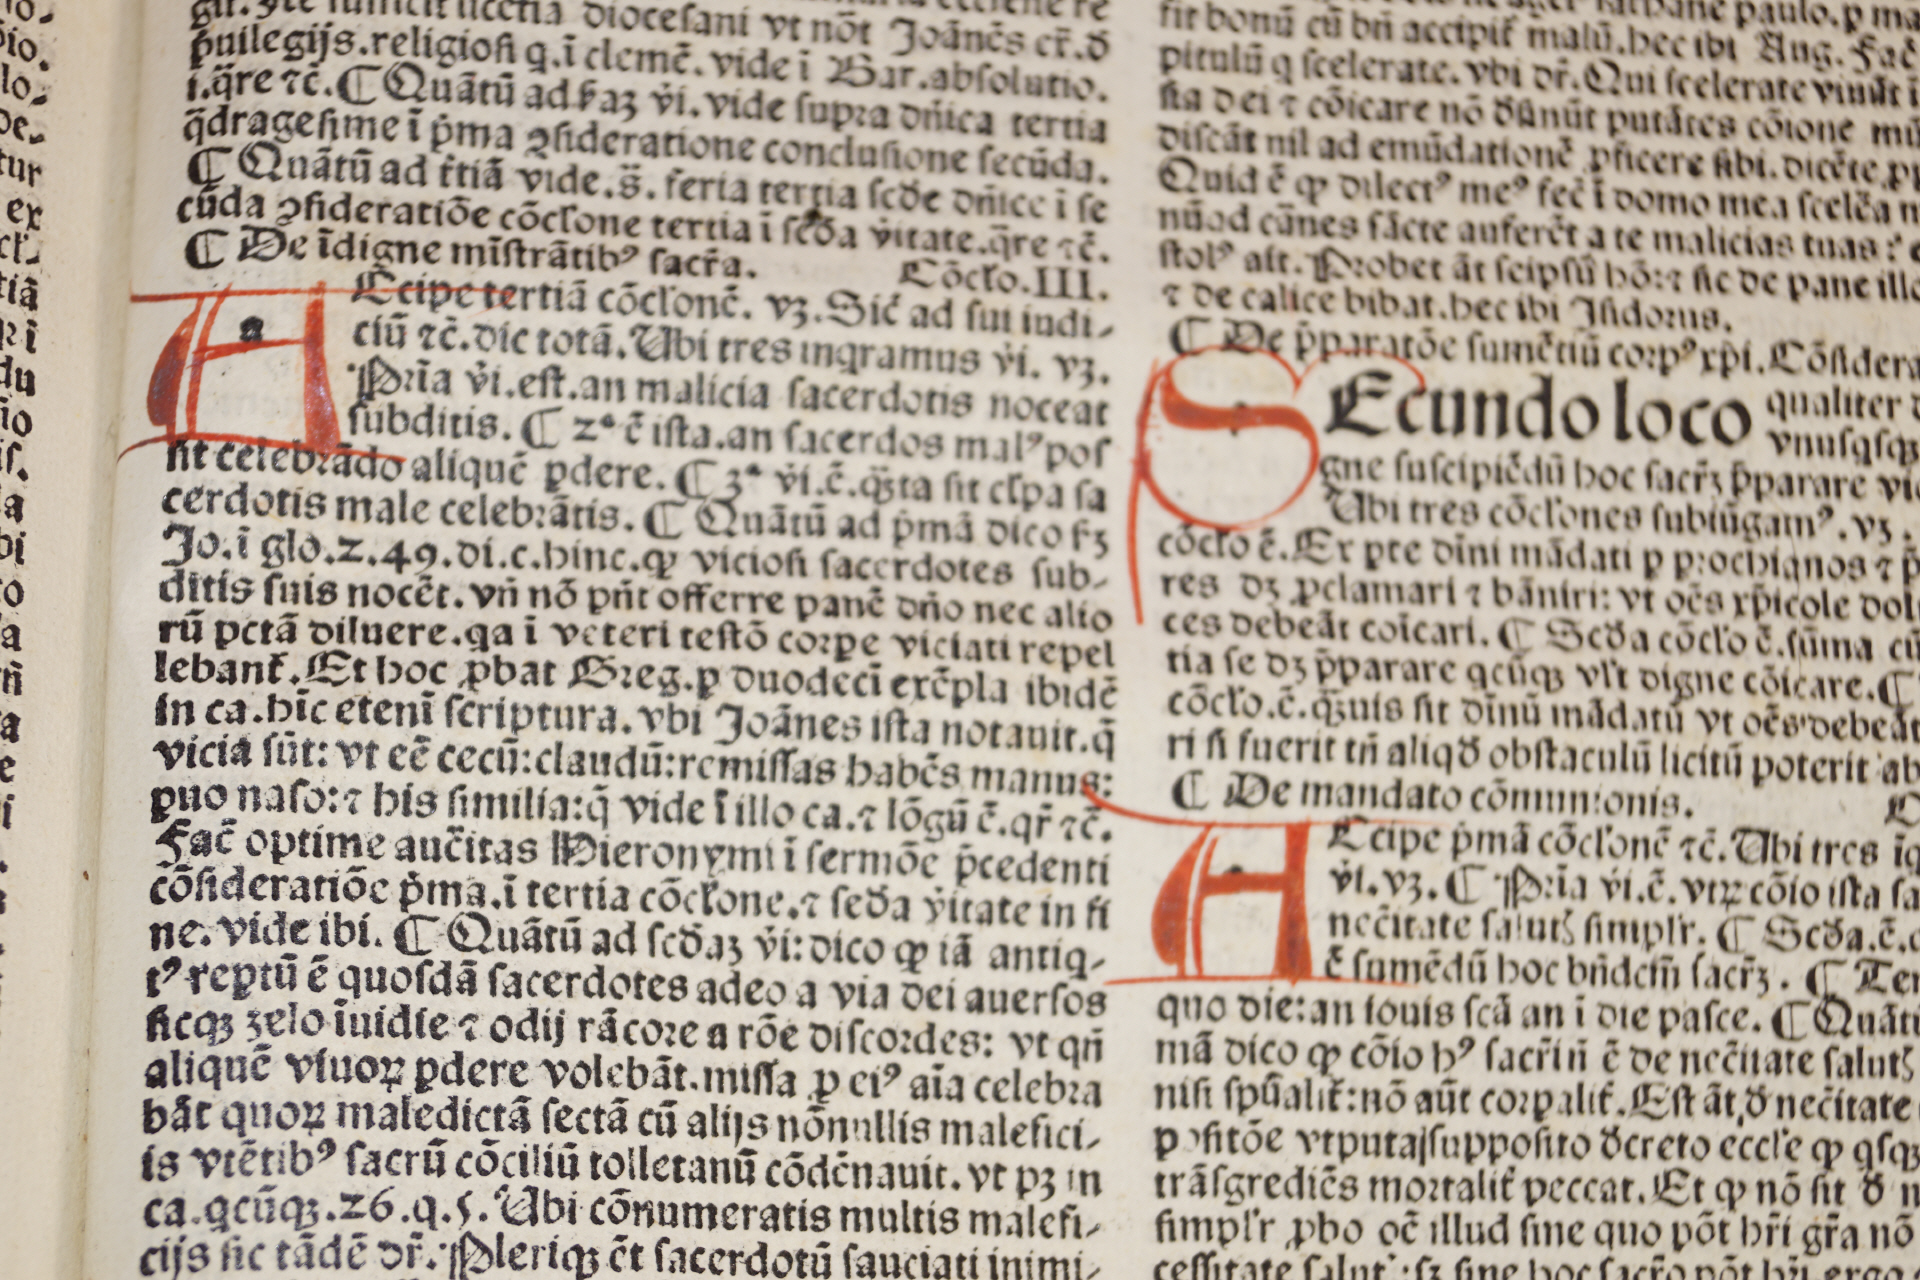 puilegijs.religiosi q.ī clemē.vide ī Bar.absolutio.
i.q̄re ⁊c̄.¶ Quātū ad s̄aʒ v̇i.vide supra dn̄ica tertia
q̄dragesime ī p̄ma ꝯsideratione conclusione secūda.
¶ Quātū ad t̄tiā vide.s̄. feria tertia scd̄e dn̄ice ī se
cūda ꝯsideratiōe cōclōne tertia ī scd̄a v̇itate.q̄re ⁊c̄.
¶ De īdigne mīstrātibꝰ sacr̄a. Cōclo.III.
Accipe tertiā cōclonē. vʒ.Sic̄ ad sui iudi-
ciū ⁊c̄.dic totā.Ubi tres inqramus v̇i. vʒ.
Pri̅a v̇i.est.an malicia sacerdotis noceat
subditis. ¶ 2ᵃ ē ista.an sacerdos malꝰ pos
sit celebrādo aliquē ꝑdere. ¶ 3ᵃ v̇i.ē.q̄ʒta sit cl̄pa sa
cerdotis male celebrātis. ¶ Quātū ad p̄mā dico s̄ʒ
Jo.ī glo.2.49.di.c.hinc.ꝙ viciosi sacerdotes sub-
ditis suis nocēt.vn̄ nō pn̄t offerre panē dn̄o nec alio
rū pctā diluere.qa ī veteri testō corꝑe viciati repel
lebant̄.Et hoc ꝓbat Greg.ꝑ duodecī exēpla ibidē
in ca.hīc etenī scriptura.vbi Joānes ista notauit.q̄
vicia sūt: vt eē cecū:claudū:remissas habēs manus:
ꝑuo naso:⁊ his similia:q̄ vide ī illo ca.⁊ lōgū ē.qr̄ ⁊c̄.
Fac̄ optime auc̄itas Hieronymi ī sermōe p̄cedenti
cōsideratiōe p̄ma.ī tertia cōclone.⁊ scd̄a v̇itate in fi
ne. vide ibi. ¶ Quātū ad scd̄aʒ v̇i:dico ꝙ iā antiq-
tꝰ reptū ē quosdā sacerdotes adeo a via dei auersos
sicqʒ ʒelo īuidie ⁊ odij rācore a rōe discordes: vt qn̄
aliquē viuoꝝ ꝑdere volebāt.missā ꝓ eiꝰ aīa celebra
bāt quoꝝ maledictā sectā cū alijs nōnullis malefici-
is vtētibꝰ sacrū cōciliū tolletanū cōdēnauit. vt pʒ in
ca.qcūqʒ.26.q.5. Ubi cōnumeratis multis malefi-
cijs sic tādē dr̄. Pleriqʒ ēt sacerdotū sauciati inimi-
sit bonū cū bn̄ accipit̄ malū.hec ibi Aug. Fac̄
pitulū q scelerate. vbi dr̄.Qui scelerate viuūt
sta dei ⁊ cōicare nō d̄sinūt putātes cōione
discāt nil ad emūdationē ꝓficere sibi.dicēte
Quid ē ꝙ dilectꝰ meꝰ fec̄ ī domo mea scelēa
nūqd cānes sācte auferēt a te malicias tuas:
stolꝰ ait.Probet āt seipsū hō:⁊ sic de pane illo
⁊ de calice bibat.hec ibi Isidorus.
¶ De p̄paratōe sumētiū corpꝰ xp̄i.Cōsidera
Secundo loco qualiter
vnusqsqʒ
gne suscipiēdū hoc sacr̄ʒ p̄parare
Ubi tres cōclōnes subiūgamꝰ. vʒ.
cōclo ē.Ex pte dn̄i mādati ꝑ prochianos ⁊
res dʒ ꝓclamari ⁊ bāniri: vt oēs xp̄icole
ces debeāt coicari. ¶ Scd̄a cōclo ē.sūma
tia se dʒ p̄parare qcūqʒ vl̄t digne cōicare.¶
cōclo.ē.q̄ʒuis sit dn̄nū mādatū vt oēs debeāt
ri si fuerit tn̄ aliqd̄ obstaculū licitū poterit
¶ De mandato cōmunionis.
Accipe p̄mā cōclonē ⁊c̄.Ubi tres
v̇i.vʒ. ¶ Pri̅a v̇i.ē.vtꝝ cōio ista
nec̄itate salutʒ simpl̄r. ¶ Scd̄a.ē.
ē sumēdū hoc bn̄dctn̄ sacr̄ʒ. ¶
quo die:an iouis scā an ī die pasce. ¶
mā dico ꝙ cōio hꝰ sacr̄in̄ ē de nec̄itate salutʒ
nisi spūalit̄:nō aūt corpalit̄.Est āt d̄ nec̄itate
positōe vtputa supposito d̄creto eccl̄e ꝙ qsqʒ
trāsgrediēs mortalit̄ peccat.Et ꝙ nō sit d̄
simpl̄r ꝓbo oē illud sine quo pōt hr̄i gr̄a nō